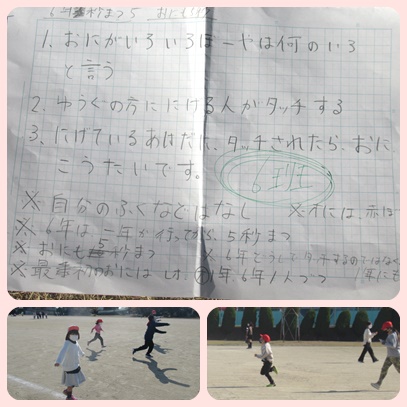 6年 秒まつ 5
1. おにがいろいろぼーやは何のいろ
と言う
2. ゆうぐの方ににげる人がタッチする
3. にげているあいだに、タッチされたら、おに
こうたいです。
6班
※ 自分のふくなどはなし ※ には、赤
※ 6年は二年が行ってから、5秒まつ
※ おにも5秒まつ ※ 6年 タッチするのではなく
※ 最初のおには 年、6年1人づつ 1年にも